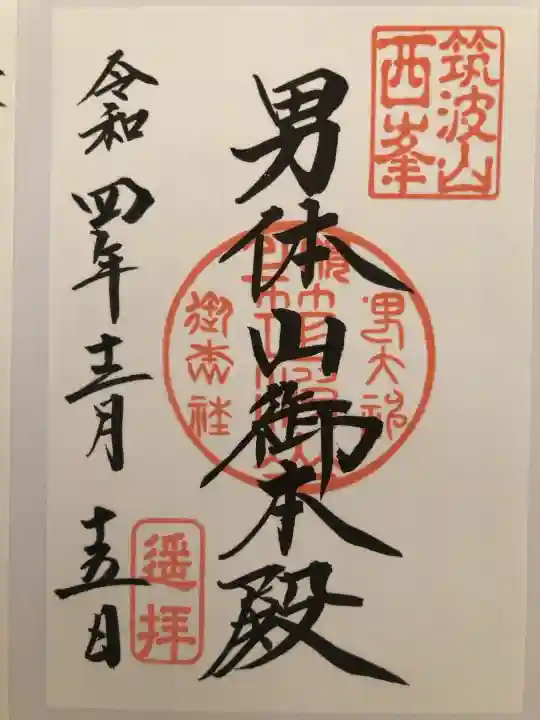 筑波山
西峯
男体山御本殿
男大神
御本社
遥拝
令和四年十二月十五日